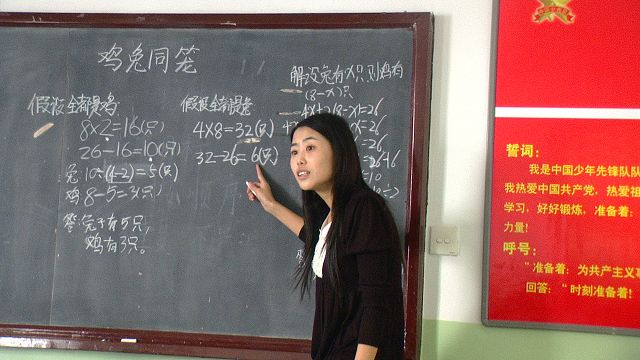 鸡兔同笼
假设全都是鸡:
8×2=16(只)
26-16=10(只)
兔 10÷(4-2)=5(只)
鸡 8-5=3(只)
答:兔子有5只,
鸡有3只。
假设全都是兔
4×8=32(只)
32-26=6(只)
解:设兔有x只,则鸡有
(8-x)只
4x+2(8-x)=26
誓词:
我是中国少年先锋队队
我热爱中国共产党,热爱祖
学习,好好锻炼,准备着:
力量!
呼号:
"准备着:为共产主义事
回答:"时刻准备着!